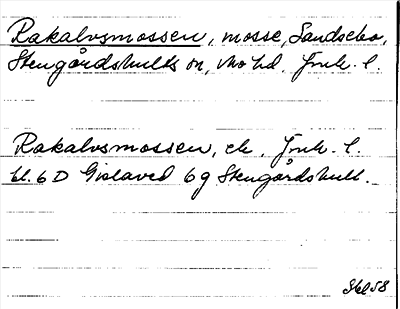 Rakalvsmossen, mosse, Sandsebo,
Stengårdshults sn, Mo hd. Jönk. l.
Rakalvsmossen, ek. Jönk. l.
bl. 6 D Gislaved 6 g Stengårdshult.
Skl 58